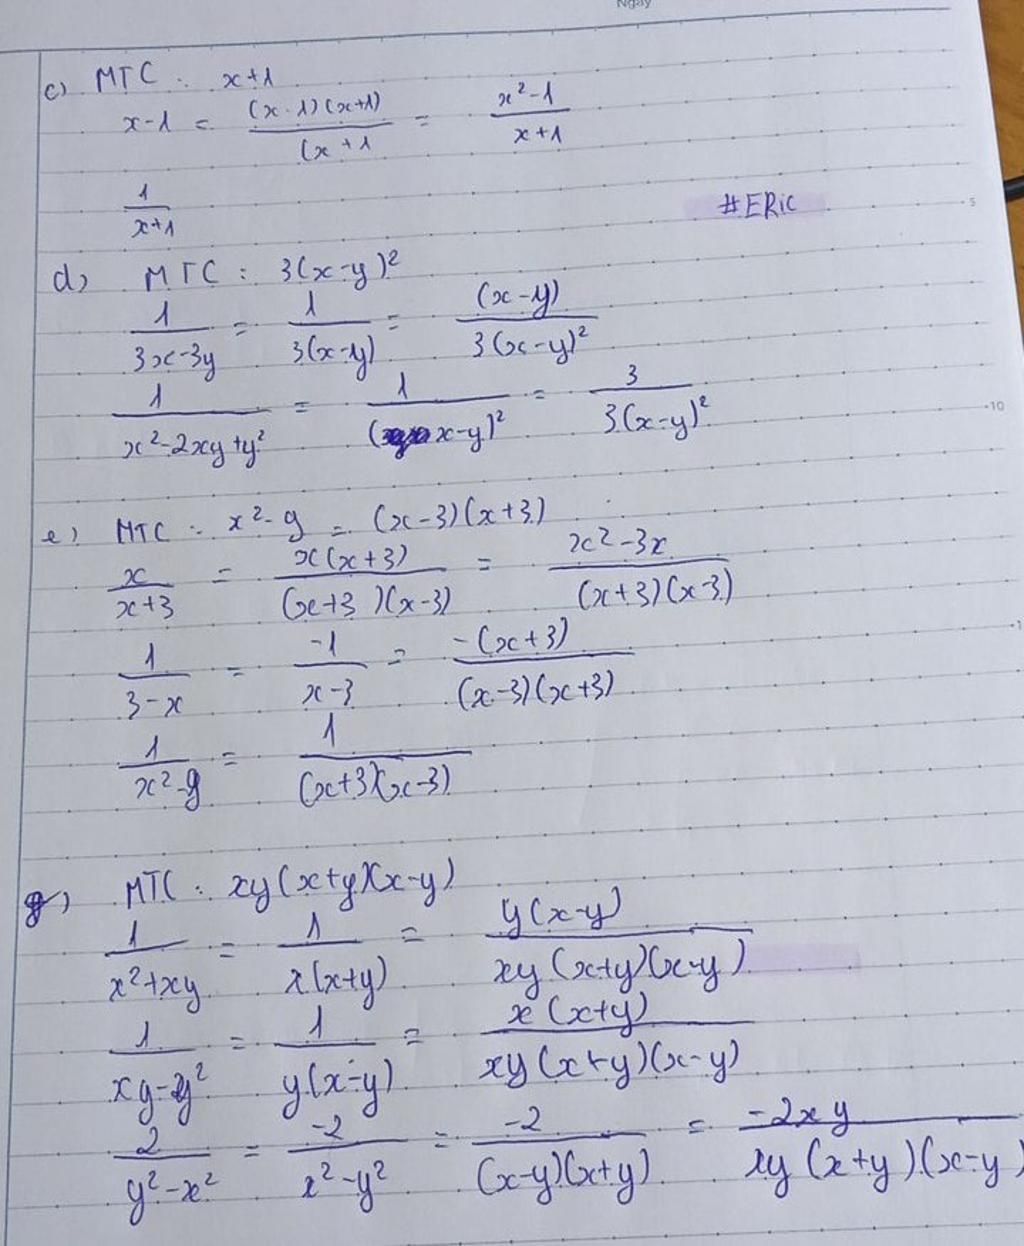 Ngày
c) MTC : x+1
x-1 = (x-1)(x+1) / (x+1 = x²-1 / x+1
1 / x+1
#ERiC
5
d) MTC : 3(x-y)²
1 / 3x-3y = 1 / 3(x-y) = (x-y) / 3(x-y)²
1 / x²-2xy+y² = 1 / (x-y)² = 3 / 3(x-y)²
10
e) MTC : x²-9 = (x-3)(x+3)
x / x+3 = x(x+3) / (x+3)(x-3) = x²-3x / (x+3)(x-3)
1 / 3-x = -1 / x-3 = -(x+3) / (x-3)(x+3)
1 / x²-9 = 1 / (x+3)(x-3)
g) MTC : xy(x+y)(x-y)
1 / x²+xy = 1 / x(x+y) = y(x-y) / xy(x+y)(x-y)
1 / xy-y² = 1 / y(x-y) = x(x+y) / xy(x+y)(x-y)
2 / y²-x² = -2 / x²-y² = -2 / (x-y)(x+y) = -2xy / xy(x+y)(x-y)